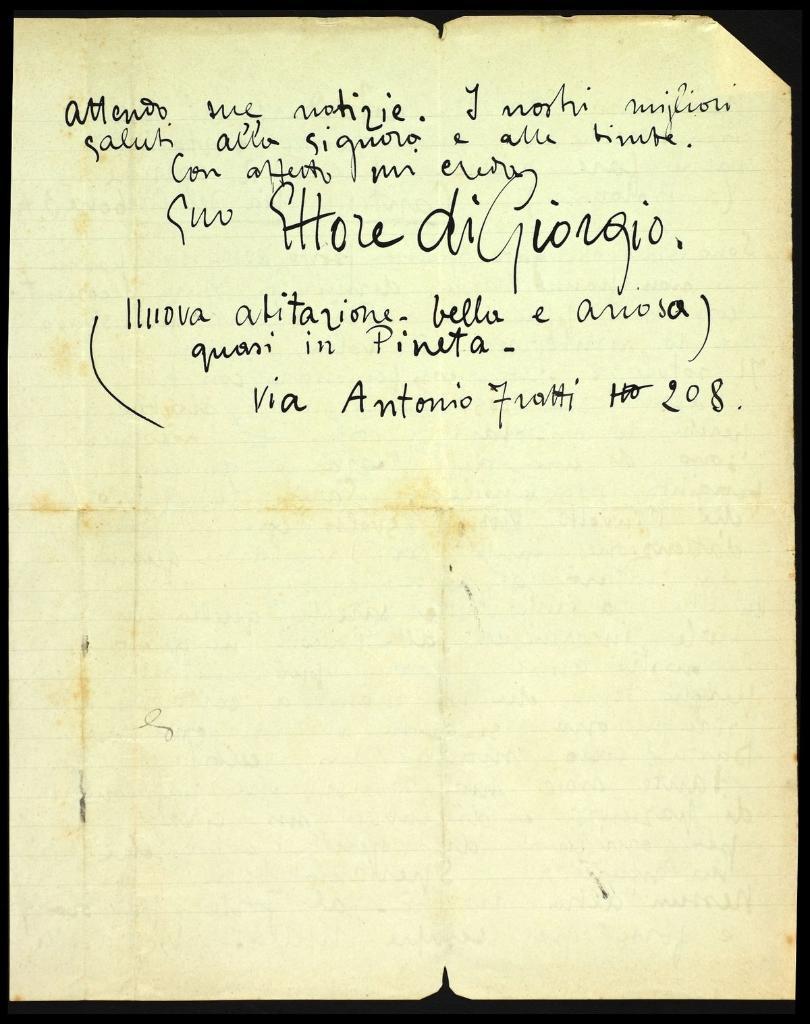 Attendo sue notizie. I nostri migliori
saluti alla signora e alle bimbe.
Con affetto mi creda
Suo Ettore di Giorgio.
(Nuova abitazione - bella e ariosa)
quasi in Pineta -
Via Antonio Fratti 208.